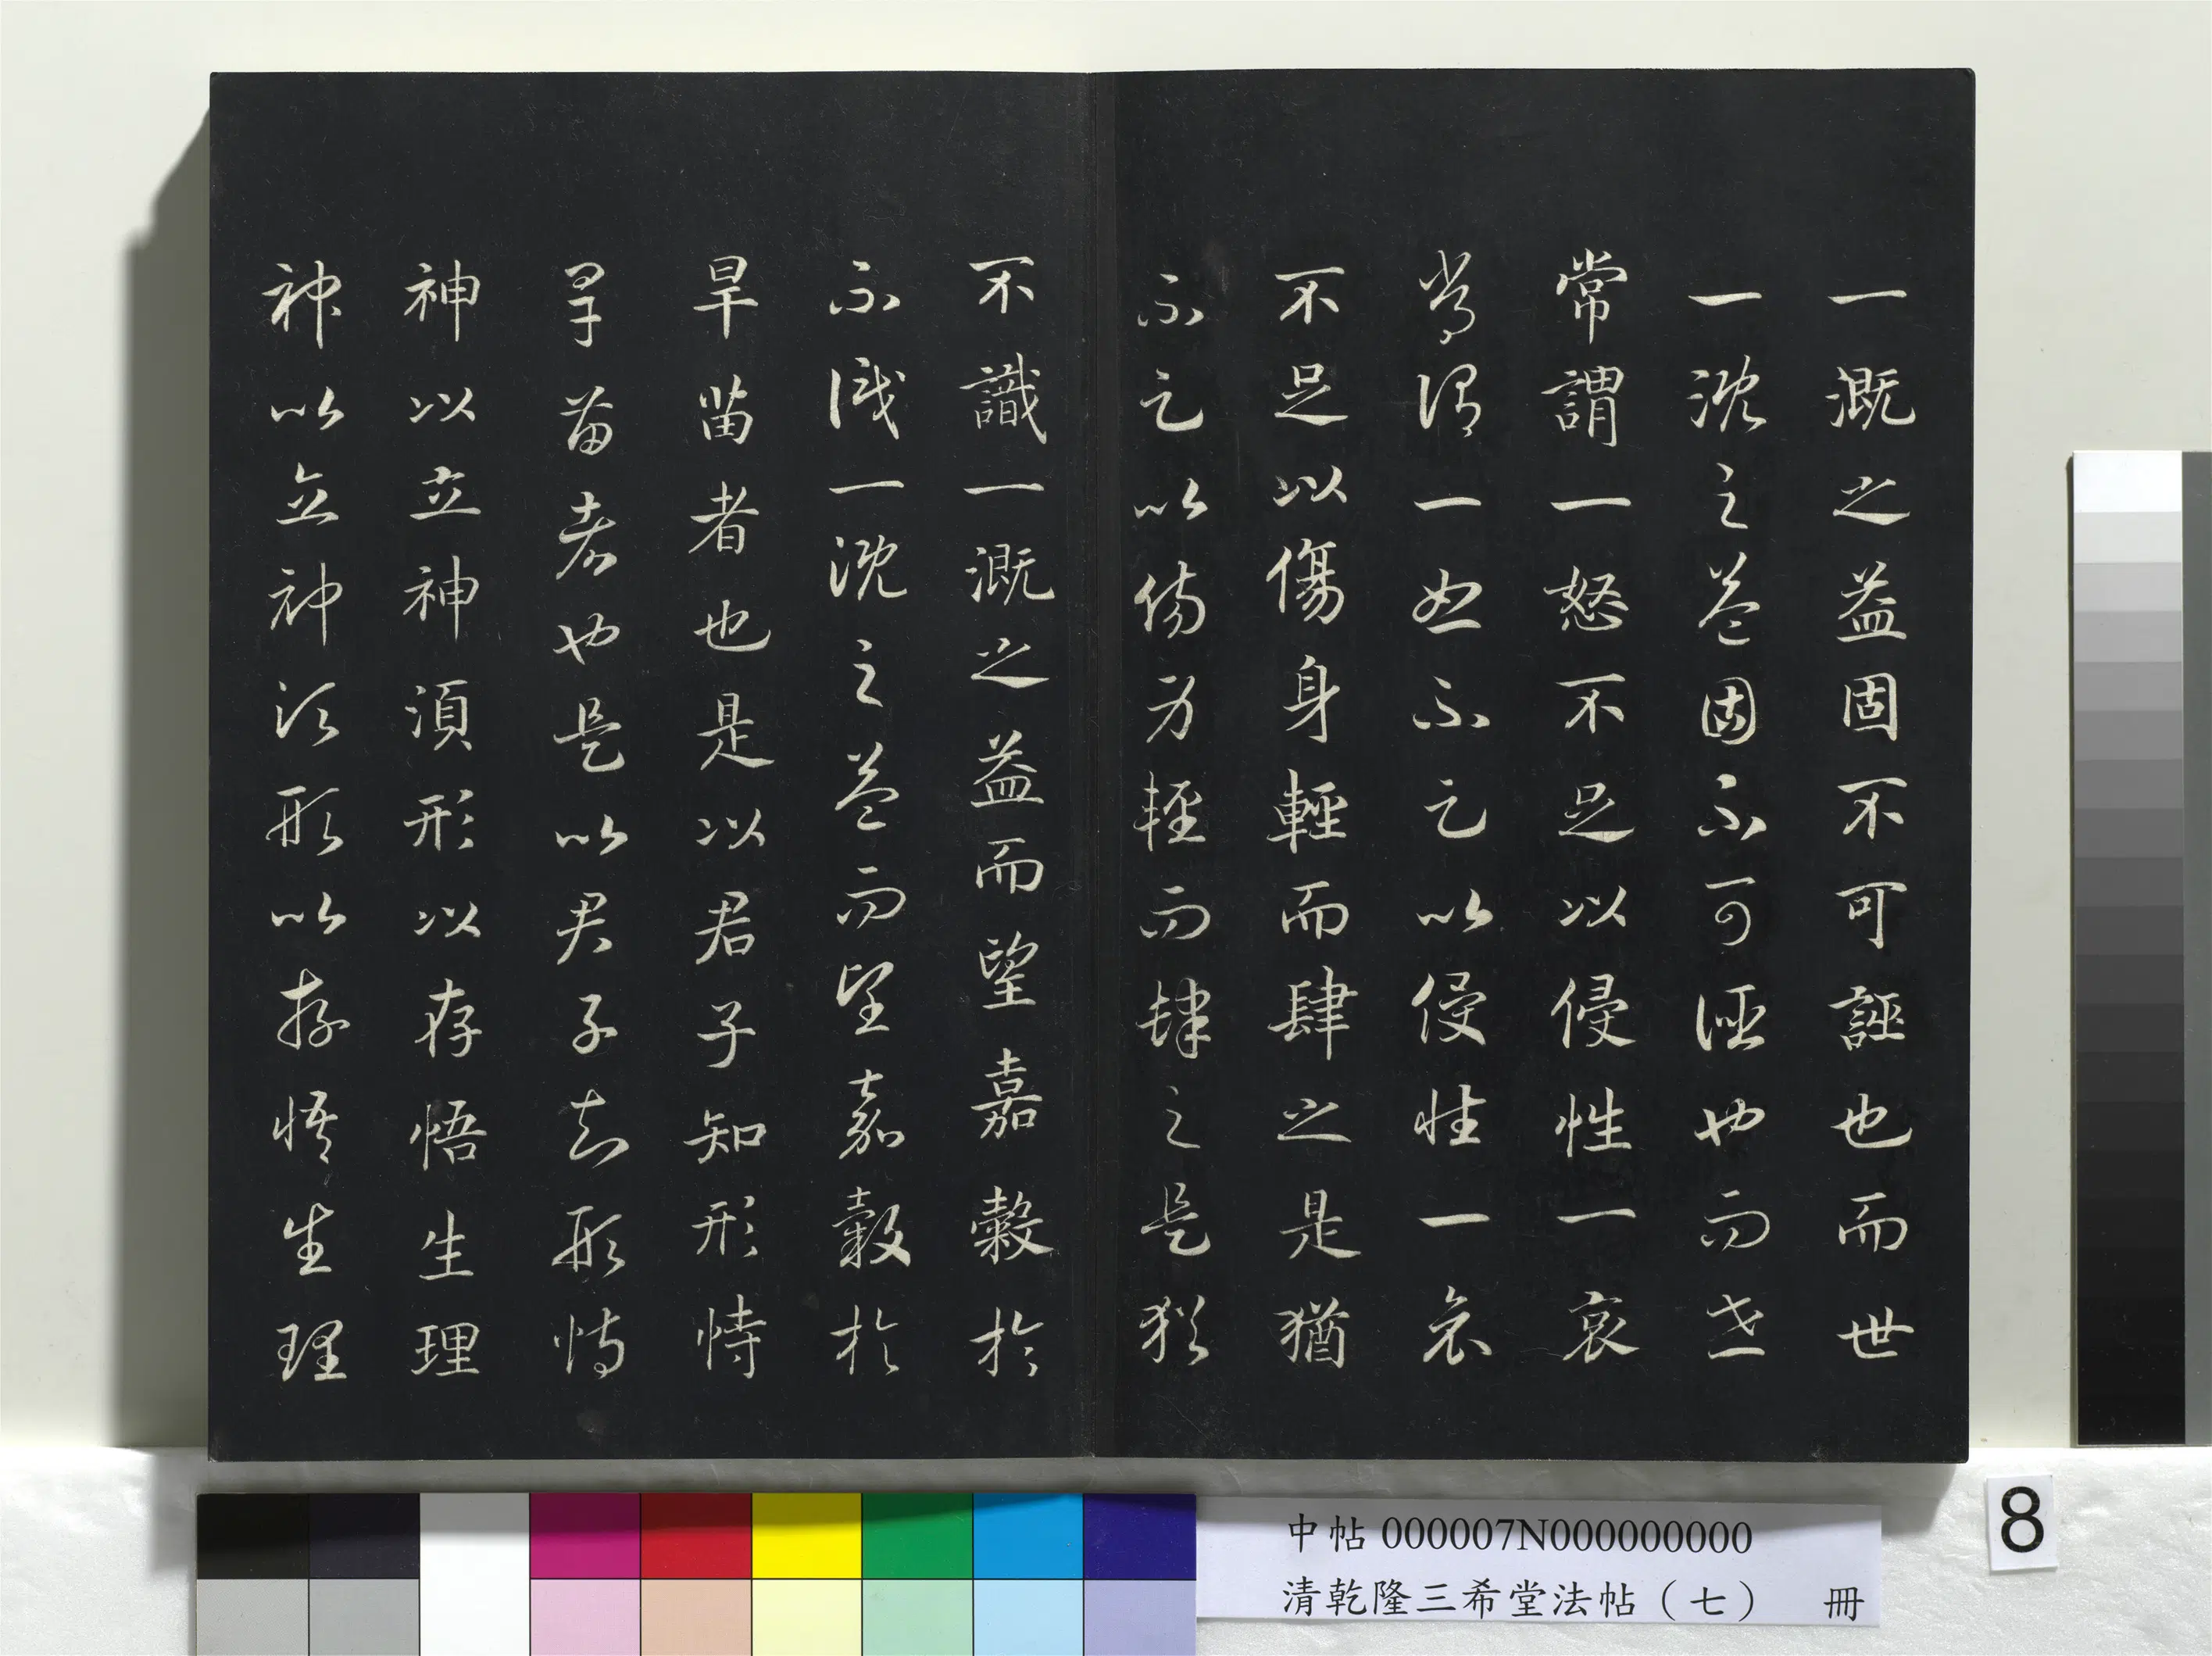 一溉之益固不可誣也而世
一溉之益固不可誣也而世
常謂一怒不足以侵性一哀
常謂一怒不足以侵性一哀
不足以傷身輕而肆之是猶
不足以傷身輕而肆之是猶
不識一溉之益而望嘉穀於
不識一溉之益而望嘉穀於
旱苗者也是以君子知形恃
旱苗者也是以君子知形恃
神以立神須形以存悟生理
神以立神須形以存悟生理
中帖 000007N000000000
清乾隆三希堂法帖（七） 冊
8